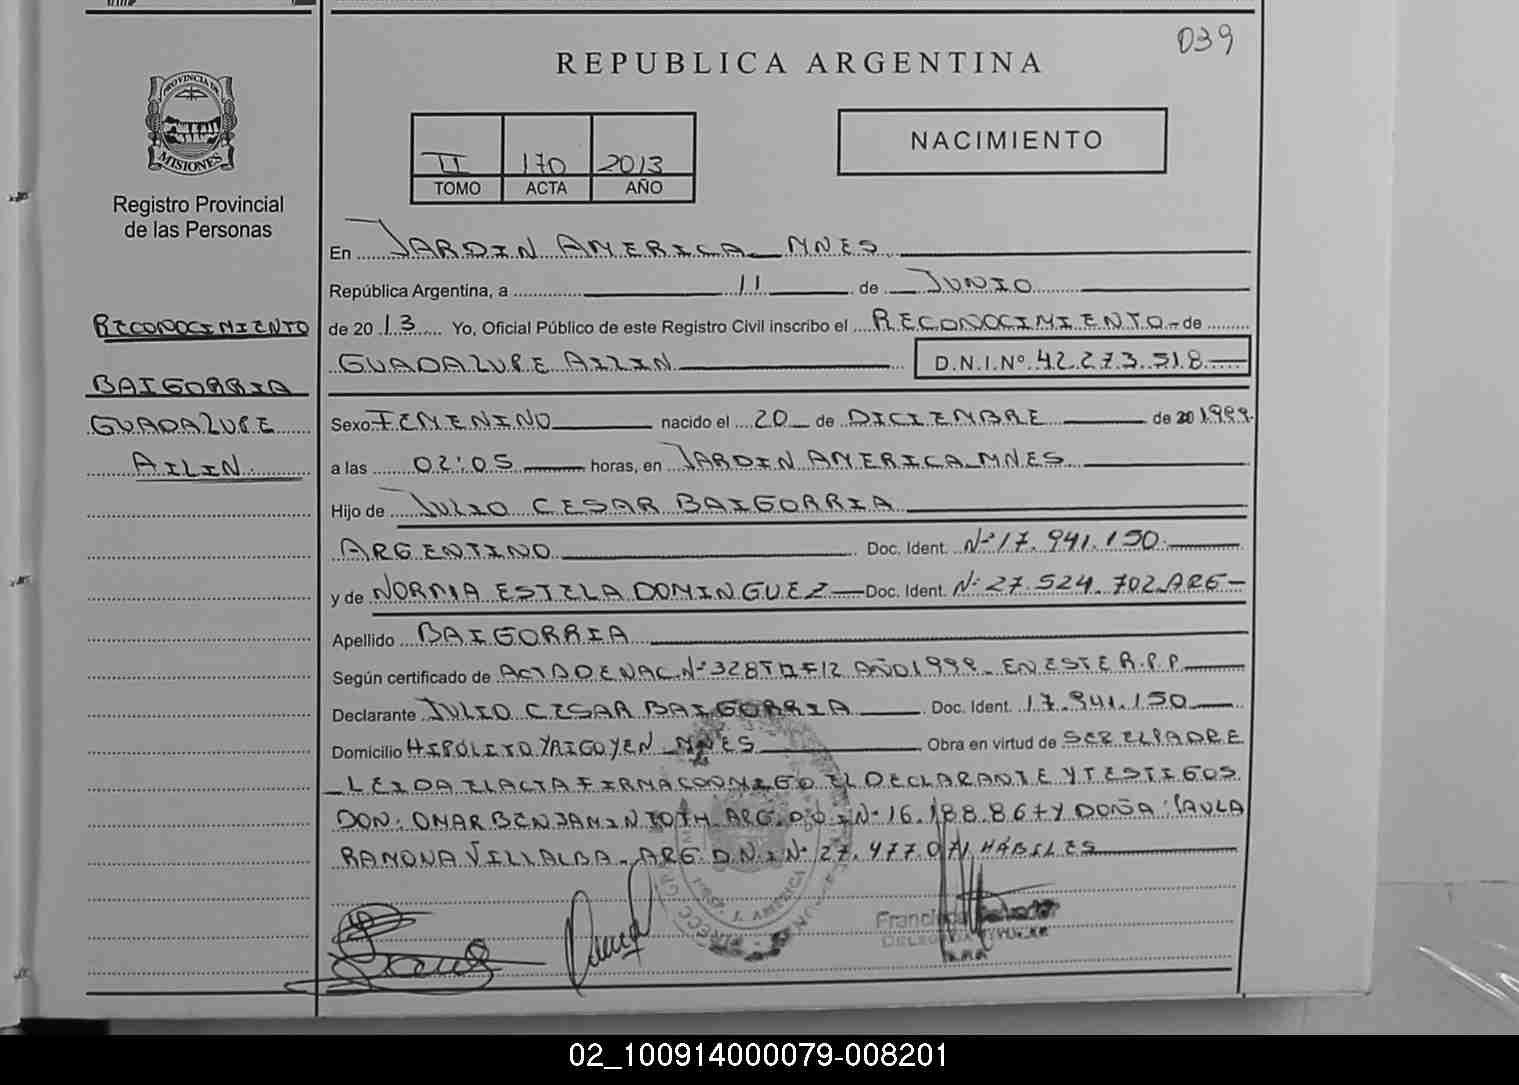 039
REPUBLICA ARGENTINA
PROVINCIA DE
MISIONES
Registro Provincial
de las Personas
II 170 2013
TOMO ACTA AÑO
NACIMIENTO
En JARDIN AMERICA MNES
República Argentina, a 11 de JUNIO
RECONOCIMIENTO
de 2013 Yo, Oficial Público de este Registro Civil inscribo el RECONOCIMIENTO de
GUADALUPE AILIN D.N.I.Nº 42.273.518
BAIGORRIA
GUADALUPE
AILIN
Sexo FEMENINO nacido el 20 de DICIEMBRE de 20 1999
a las 02:05 horas, en JARDIN AMERICA MNES
Hijo de JULIO CESAR BAIGORRIA
ARGENTINO Doc. Ident. Nº 17.941.150
y de NORMA ESTELA DOMINGUEZ Doc. Ident. Nº 27.524.702 ARG
Apellido BAIGORRIA
Según certificado de ACTA DE NAC. Nº 328 T II F 12 AÑO 1999 EN ESTE R.P.P
Declarante JULIO CESAR BAIGORRIA Doc. Ident. 17.941.150
Domicilio HIPÓLITO YRIGOYEN MNES Obra en virtud de SER EL PADRE
LEIDA EL ACTA FIRMA CONMIGO EL DECLARANTE Y TESTIGOS
DON: OMAR BENJAMIN TOTH ARG. D.N.I Nº 16.188.867 Y DOÑA: PAULA
RAMONA VILLALBA ARG. D.N.I Nº 27.477.071 HÁBILES
AMERICA
02_100914000079-008201